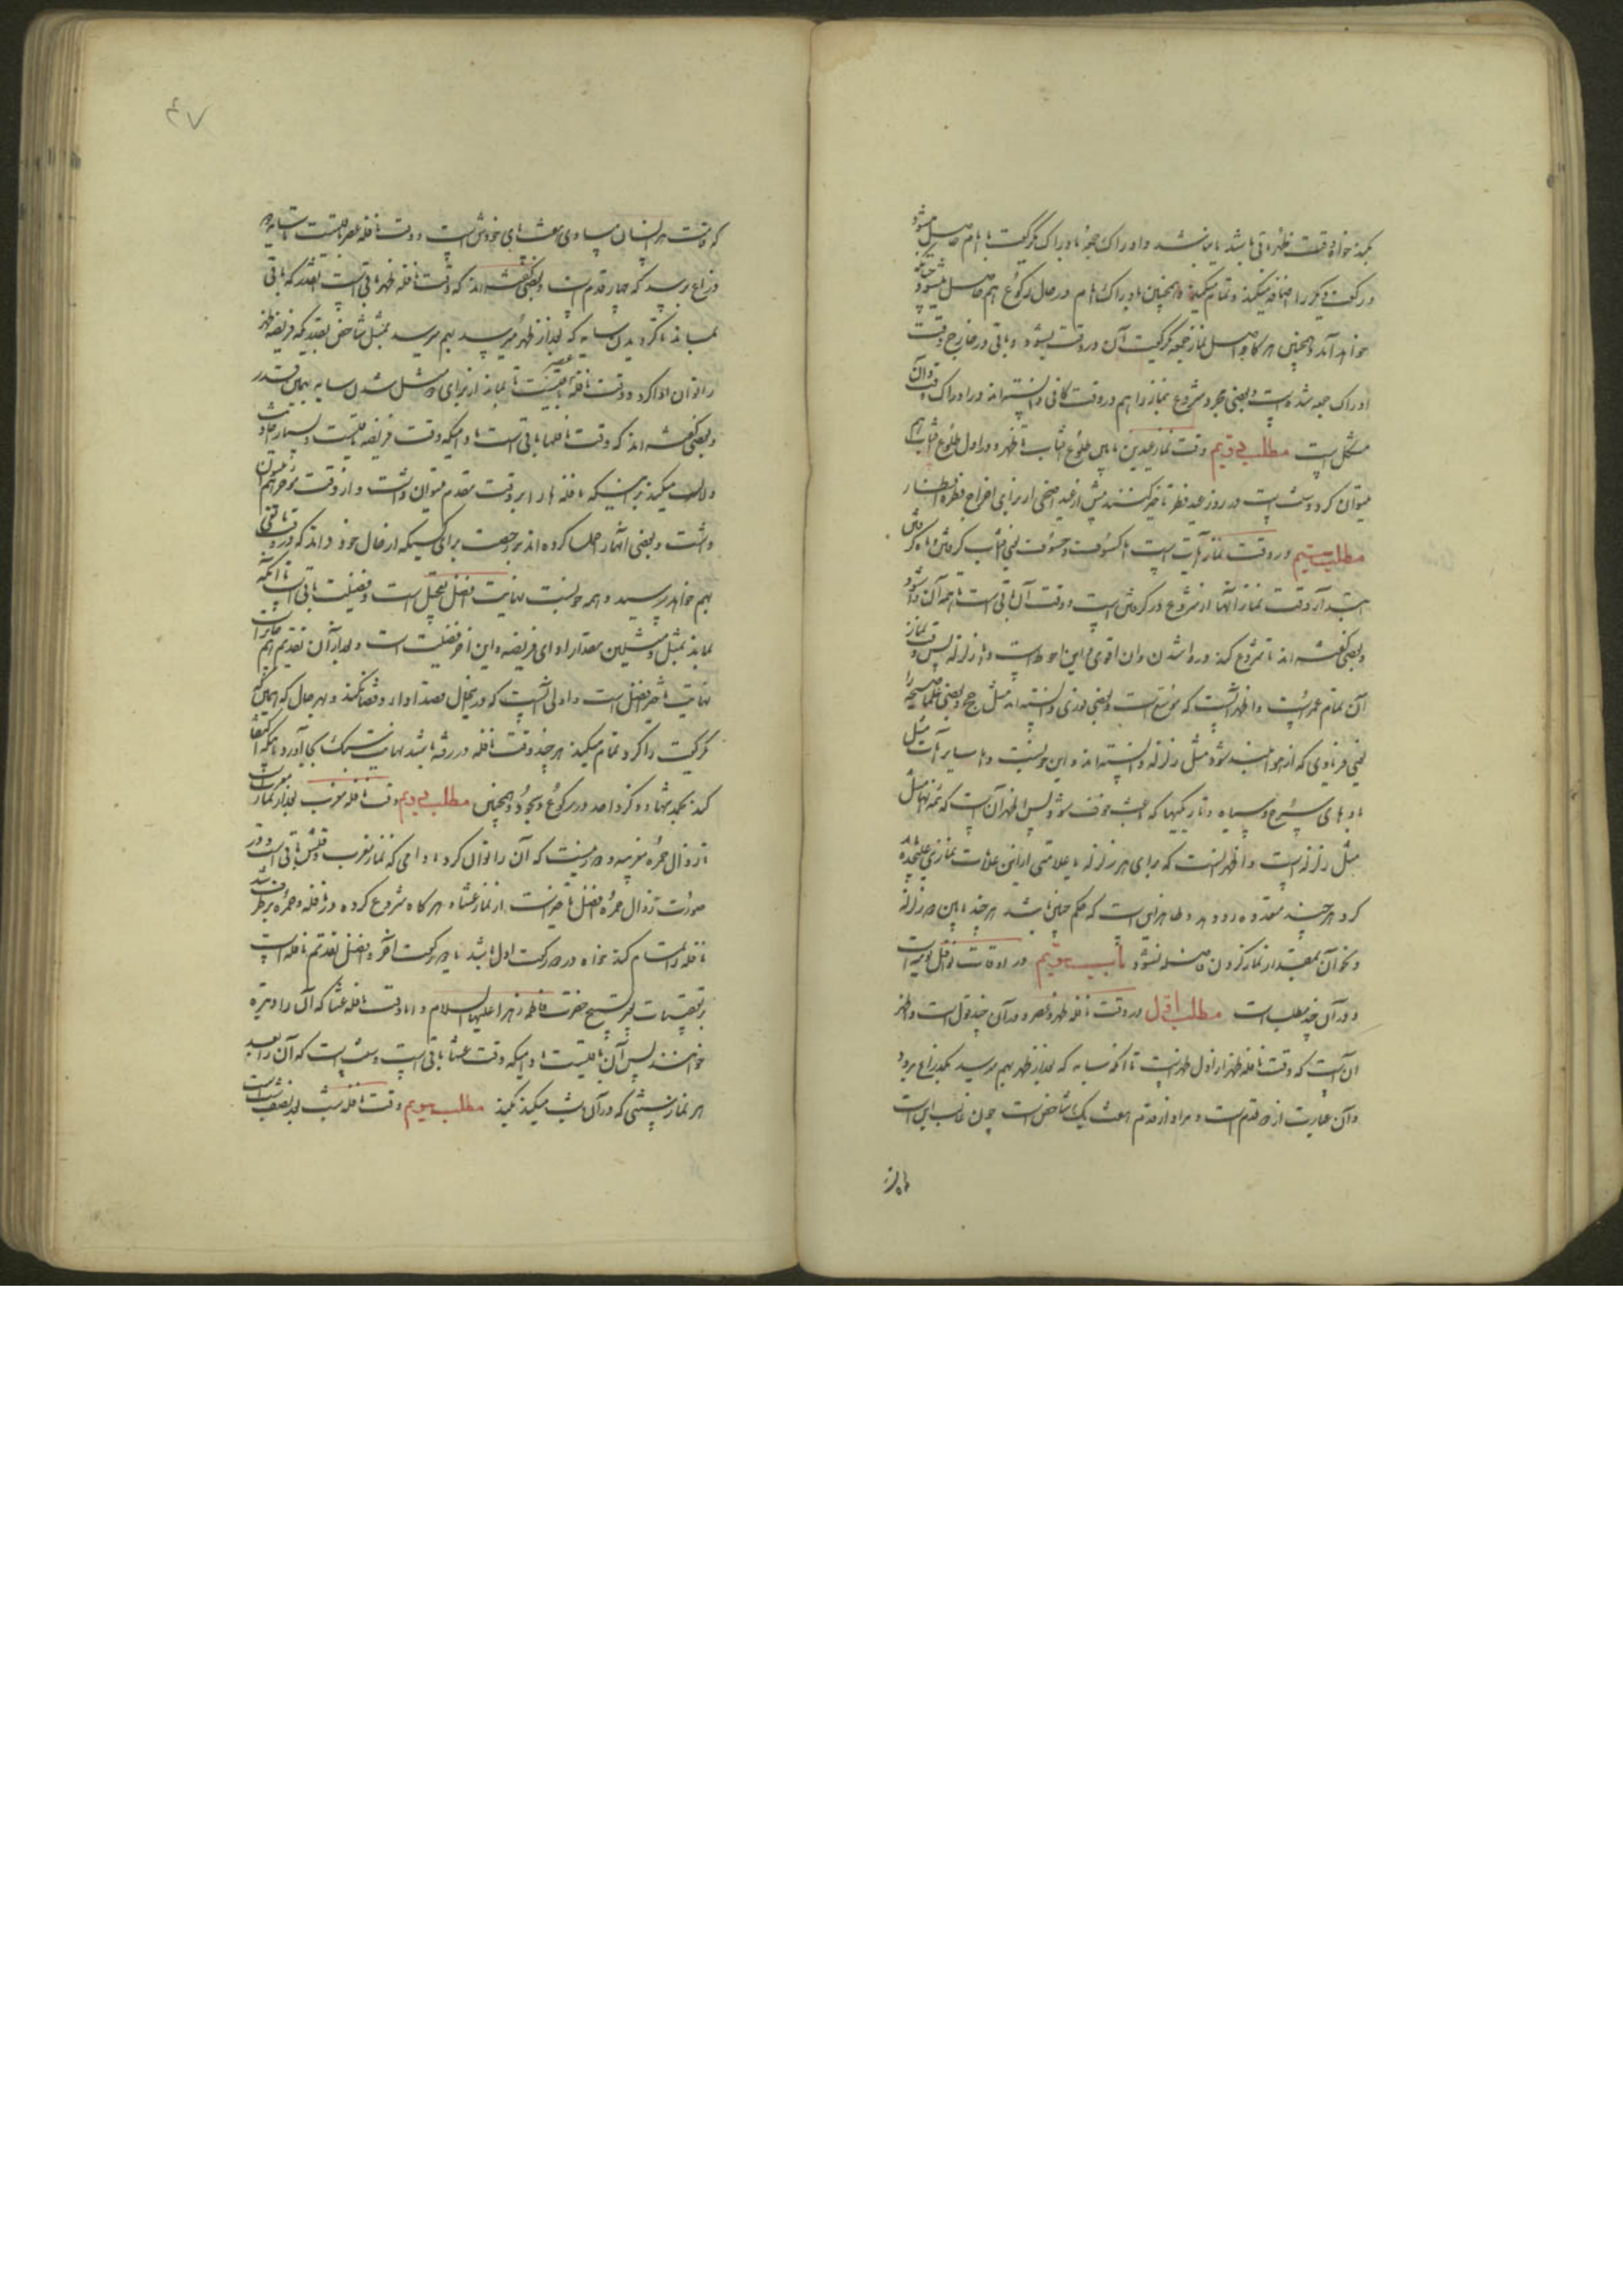 بکند خواه وقت ظهر باقی باشد یا نباشد و ادراک جمعه بادراک یکرکعت با امام حاصل میشود
و رکعت دیگر را اضافه میکند و تمام میکند و همچنین بادراک امام در حال رکوع هم حاصل میشود چنانچه
خواهد آمد و همچنین هر گاه اصل نماز جمعه یکرکعت آن در وقت بشود و باقی در خارج وقت
ادراک جمعه شده است و بعضی مجرد شروع بنماز را هم در وقت کافی دانسته‌اند و در ادراک وقت آن
مشکل است مطلب وقت نماز عیدین مابین طلوع آفتاب تا ظهر و در اول طلوع آفتاب هم
میتوان کرد و سنت است در روز عید فطر تاخیر کنند بیش از عید اضحی از برای اخراج فطره و افطار
مطلب در وقت نماز آیات است اما کسوف و خسوف یعنی آفتاب گرفتن و ماه گرفتن
ابتدا وقت نماز آنها از شروع در گرفتن است و وقت آن باقی است تا همه آن وا شود
و بعضی گفته‌اند تا شروع کند در وا شدن و ان اقوی و این احوط است و اما زلزله پس وقت نماز
آن تمام عمر است و اظهر آنست که موسع است و بعضی فوری دانسته‌اند مثل حج و بعضی علما صیحه را
یعنی فریادی که از هوا شنیده شود مثل زلزله دانسته‌اند و این خوبست و اما سایر آیات مثل
بادهای سرخ و سیاه و تاریکیها که باعث خوف شود پس اظهر آن است که همه آنها مثل
مثل زلزله است و اظهر آنست که برای هر زلزله یا علامتی از این علامات نمازی علیحده
کرد هر چند متعدد و ظاهر این است که حکم چنین باشد هر چند مابین دو زلزله
و نحو آن بمقدار نماز کردن فاصله نشود باب در اوقات نوافل یومیه است
و در آن چند مطلب است مطلب اول در وقت نافله ظهر و عصر و در آن چند قول است و اظهر
آن است که وقت نافله ظهر از اول ظهر است تا آنکه سایه که بعد از ظهر بهم میرسد بکذراع برود
و آن عبارت از دو قدم است و مراد از قدم هفت یک شاخص است چون غالب این است
که قامت هر انسان مساوی هفت پای خودش است و وقت نافله عصر باقیست تا سایه دو
ذراع برسد که چهار قدم است و بعضی گفته‌اند که وقت نافله ظهر باقی است آنقدر که باقی
نمانده باشد بگردیدن سایه که بعد از ظهر میرسد بهم میرسد بمثل شاخص بقدریکه فریضه ظهر
را توان ادا کرد و وقت نافله عصر باقیست تا نماز از برای دو مثل شدن سایه بهمین قدر
و بعضی گفته‌اند که وقت نافلها باقی است مادامیکه وقت فریضه باقیست و بسیار احادیث
دلالت میکند بر اینکه نافله‌ها را بر وقت مقدم میتوان داشت و از وقت مؤخر هم میتوان
داشت و بعضی آنها را حمل کرده‌اند بر رخصت برای کسیکه از حال خود داند که در وقت
بهم نخواهد رسید و همه خوبست نهایت افضل تعجیل است و فضیلت باقی است تا آنکه
نماند بمثل و مثلین مقدار ادای فریضه و این آخر فضیلت است و بعد از آن تقدیم هم جایز است
نهایت تاخیر افضل است و اولی آنست که در تعجیل قصد ادا و قضا نکند و بهر حال که همین که
یکرکعت را کرد تمام میکند هر چند وقت نافله در رفته باشد نهایت سبک بجا آورد باینکه اکتفا
کند بحمد تنها و ذکر واحد در رکوع و سجود و همچنین مطلب دویم وقت نافله مغرب بعد از نماز مغرب است
تا زوال حمره مغربیه و دور نیست که آن را توان کرد مادامی که نماز مغرب وقتش باقی است و در
صورت زوال حمره افضل تاخیر آنست از نماز عشا و هر گاه شروع کرده در نافله و حمره برطرف شد
نافله را تمام کند خواه در دو رکعت اول باشد یا دو رکعت آخر و افضل تقدیم نافله است
بر تعقیبات غیر تسبیح حضرت فاطمه زهرا علیها السلام و اما وقت نافله عشا که آن را وتیره
خوانند پس آن باقیست مادامیکه وقت عشا باقی است و سنت است که آن را بعد
هر نماز سنتی که در آن شب میکند بکند مطلب سویم وقت نافله شب بعد نصف شب است